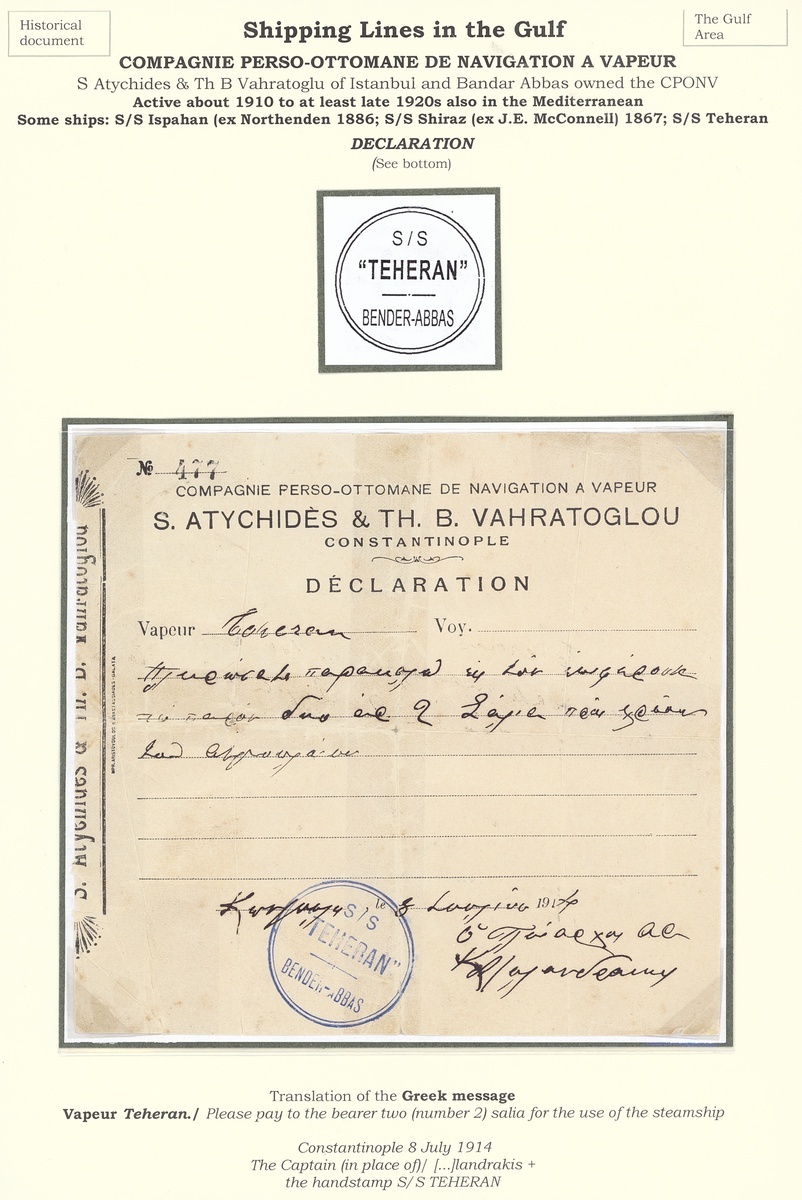 Historical
document
The Gulf
Area
Shipping Lines in the Gulf
COMPAGNIE PERSO-OTTOMANE DE NAVIGATION A VAPEUR
S Atychides & Th B Vahratoglu of Istanbul and Bandar Abbas owned the CPONV
Active about 1910 to at least late 1920s also in the Mediterranean
Some ships: S/S Ispahan (ex Northenden 1886; S/S Shiraz (ex J.E. McConnell) 1867; S/S Teheran
DECLARATION
(See bottom)
S/S
"TEHERAN"
BENDER-ABBAS
S. Atychides & Th. B. Vahratoglou
№ 477
COMPAGNIE PERSO-OTTOMANE DE NAVIGATION A VAPEUR
S. ATYCHIDÈS & TH. B. VAHRATOGLOU
CONSTANTINOPLE
DÉCLARATION
Vapeur Teheran Voy.
παρακαλῶ εἰς τὸν
τὸ παρὸν δύο 2
τοῦ
le 8 Ἰουλίου 1914
Ὁ Πλοίαρχος
S/S
"TEHERAN"
BENDER-ABBAS
Translation of the Greek message
Vapeur Teheran./ Please pay to the bearer two (number 2) salia for the use of the steamship
Constantinople 8 July 1914
The Captain (in place of)/ [...]landrakis +
the handstamp S/S TEHERAN